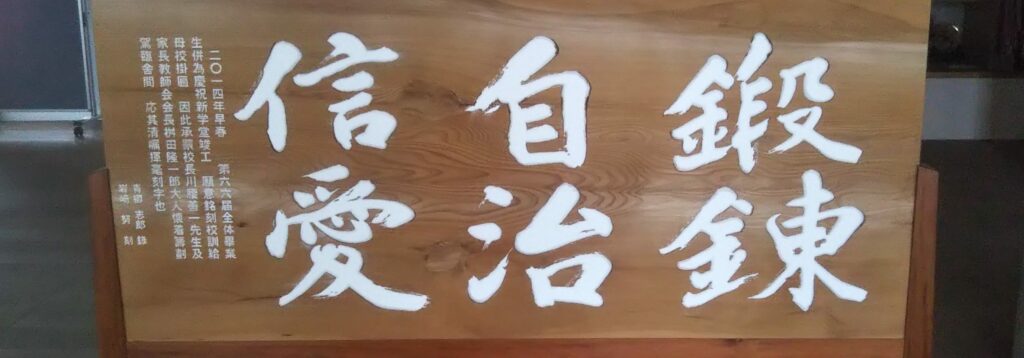 鍛錬
自治
信愛
二〇一四年早春 第六六届全体畢業
生併為慶祝新学堂竣工 願意銘刻校訓給
母校掛匾 因此承蒙校長川瀬善一先生及
家長教師会会長桝田隆一郎大人懐着籌劃
駕臨舎間 応其清嘱揮毫刻字也
青柳志郎 録
岩崎 努 刻